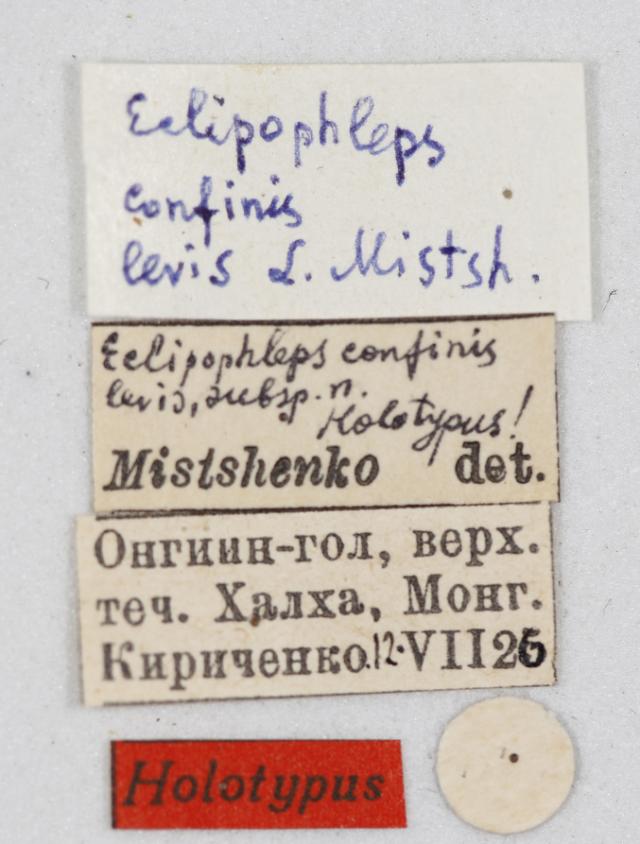 Eclipophleps
confinis
levis L. Mistsh.
Eclipophleps confinis
levis, subsp. n.
Holotypus!
Mistshenko det.
Онгиин-гол, верх.
теч. Халха, Монг.
Кириченко.12.VII26
Holotypus